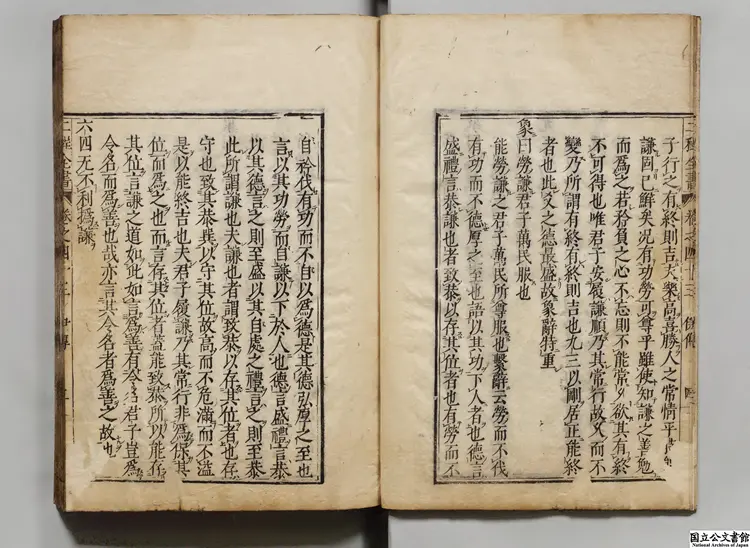 子行之有終則吉夫樂高喜勝人之常情平
謙固已鮮矣況有功勞可尊乎雖使知謙之善勉
而爲之若矜負之心不忘則不能常久欲其有終
不可得也唯君子安履謙順乃其常行故久而不
變乃所謂有終有終則吉也九三以剛居正能終
者也此爻之德最盛故象辭特重
象曰勞謙君子萬民服也
能勞謙之君子萬民所尊服也繫辭云勞而不伐
有功而不德厚之至也語以其功下人者也德言
盛禮言恭謙也者致恭以存其位者也有勞而不
自矜伐有功而不自以爲德是其德弘厚之至也
言以其功勞而自謙以下於人也德言盛禮言恭
以其德言之則至盛以其自處之禮言之則至恭
此所謂謙也夫謙也者謂致恭以存其位者也存
守也致其恭巽以守其位故高而不危滿而不溢
是以能終吉也夫君子履謙乃其常行非爲保其
位而爲之也而言存其位者蓋能致恭所以能存
其位言謙之道如此如言爲善有令名君子豈爲
令名而爲善也哉亦言其令名者爲善之故也
六四无不利撝謙
二程全書 卷之四十三
国立公文書館
National Archives of Japan